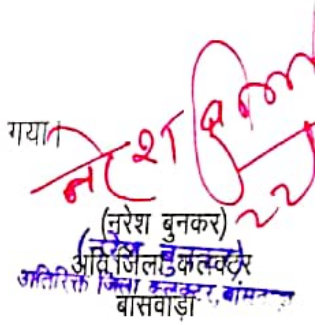 गया।
नरेश
(नरेश बुनकर)
(नरेश बुनकर)
अति.जिला कलक्टर
अतिरिक्त जिला कलक्टर, बांसवाड़ा
बांसवाड़ा